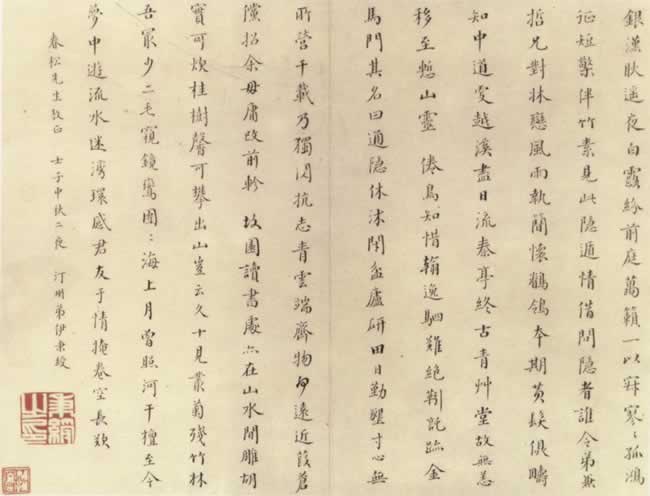 銀漢耿遙夜白露綠前庭萬籟一以寂寥〻孤鴻
征短檠伴竹素見此隱遁情借問隱者誰令弟兼
哲兄對牀戀風雨執簡懷鶺鴒本期黃髮俱疇
知中道支越溪盡日流秦亭終古青艸堂故無恙
移至愁山靈 倦鳥知惜翰逸駟難絕靷託跡金
馬門其名曰通隱休沐閉盦廬研田日勤墾寸心無
所營千載乃獨閃抗志青雲端齊物夘遠近葭蒼
儻招余毋庸改前軫 故園讀書處亦在山水間雕胡
實可炊桂樹馨可攀出山豈云久十見叢菊殘竹林
吾最少二毛窺鏡鸞團〻海上月曾照河干檀至今
夢中遊流水迷灣環感君友于情掩卷空長歎
春松先生教正 壬子中秋二夜 汀州弟伊秉綬
秉綬之印